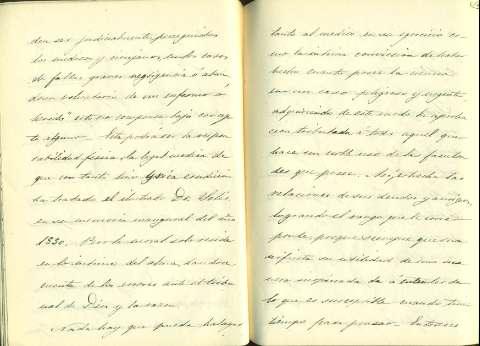 den ser judicialmente perseguidos
los médicos y cirujanos, en los casos
de faltas graves negligencia ó aban
dono voluntario de un enfermo ó
herido
te alguno. Esta podrá ser la respon
sabilidad física, la legal médica de
que con tanto
ha tratado el ilustrado Dr. Solís,
en su memoria inaugural del año
1830. Por lo moral solo reside
en lo íntimo del alma, dando
cuenta de los errores ante el tribu
nal de Dios y la razon.
Nada hay que pueda halagar
tanto al médico en su ejercicio co
mo la íntima conviccion de haber
hecho cuanto posee la ciencia
en un caso peligroso y urgente,
adquiriendo de este modo la aproba
cion tributada á todo aquel que
hace un noble uso de la faculta
des que posee. las
relaciones de sus deudos y amigos,
logrando el rango que le corres
ponde, porque siempre que sea
su utilidad de una ma
nera da á entender de
lo que es susceptible cuando tiene
tiempo para pensar. Entonces